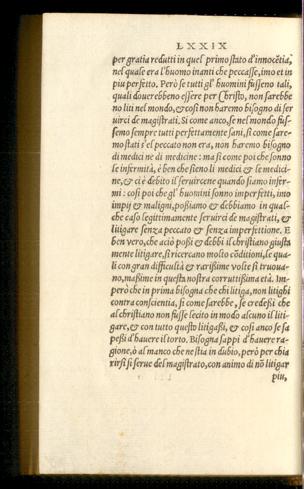 LXXIX
per gratia redutti in quel primo stato d'innocẽtia,
nel quale era l'huomo inanti che peccasse, imo et in
piu perfetto. Però se tutti gl'huomini fusseno tali,
quali douerebbeno essere per Christo, non sarebbe
no liti nel mondo, & cosi non haremo bisogno di ser
uirci de magistrati. Si come anco, se nel mondo fus=
semo sempre tutti perfettamente sani, si come sare=
mo stati s'el peccato non era, non haremo bisogno
di medici ne di medicine: ma si come poi che sonno
le infermità, è ben che sieno li medici & le medici=
ne, & ci è debito il seruircene quando siamo infer=
mi: cosi poi che gl'huomini sonno imperfetti, imo
impij & maligni, possiamo & debbiamo in qual=
che caso legittimamente seruirci de magistrati, &
litigare senza peccato & senza imperfettione. E
ben vero, che aciò possi & debbi il christiano giusta
mente litigare, si ricercano molto cõditioni, le qua=
li con gran difficultà & rarissime volte si truoua=
no, massime in questa nostra corruttissima età. Im=
però che in prima bisogna che chi litiga, non litighi
contra conscientia, si come sarebbe, se credessi che
al christiano non fusse lecito in modo alcuno il liti=
gare, & con tutto questo litigassi, & cosi anco se sa
pessi d'hauere il torto. Bisogna sappi d'hauere ra=
gione, ò al manco ne stia in dubio, però per chia
rirsi si serue del magistrato, con animo di nõ litigar
piu,